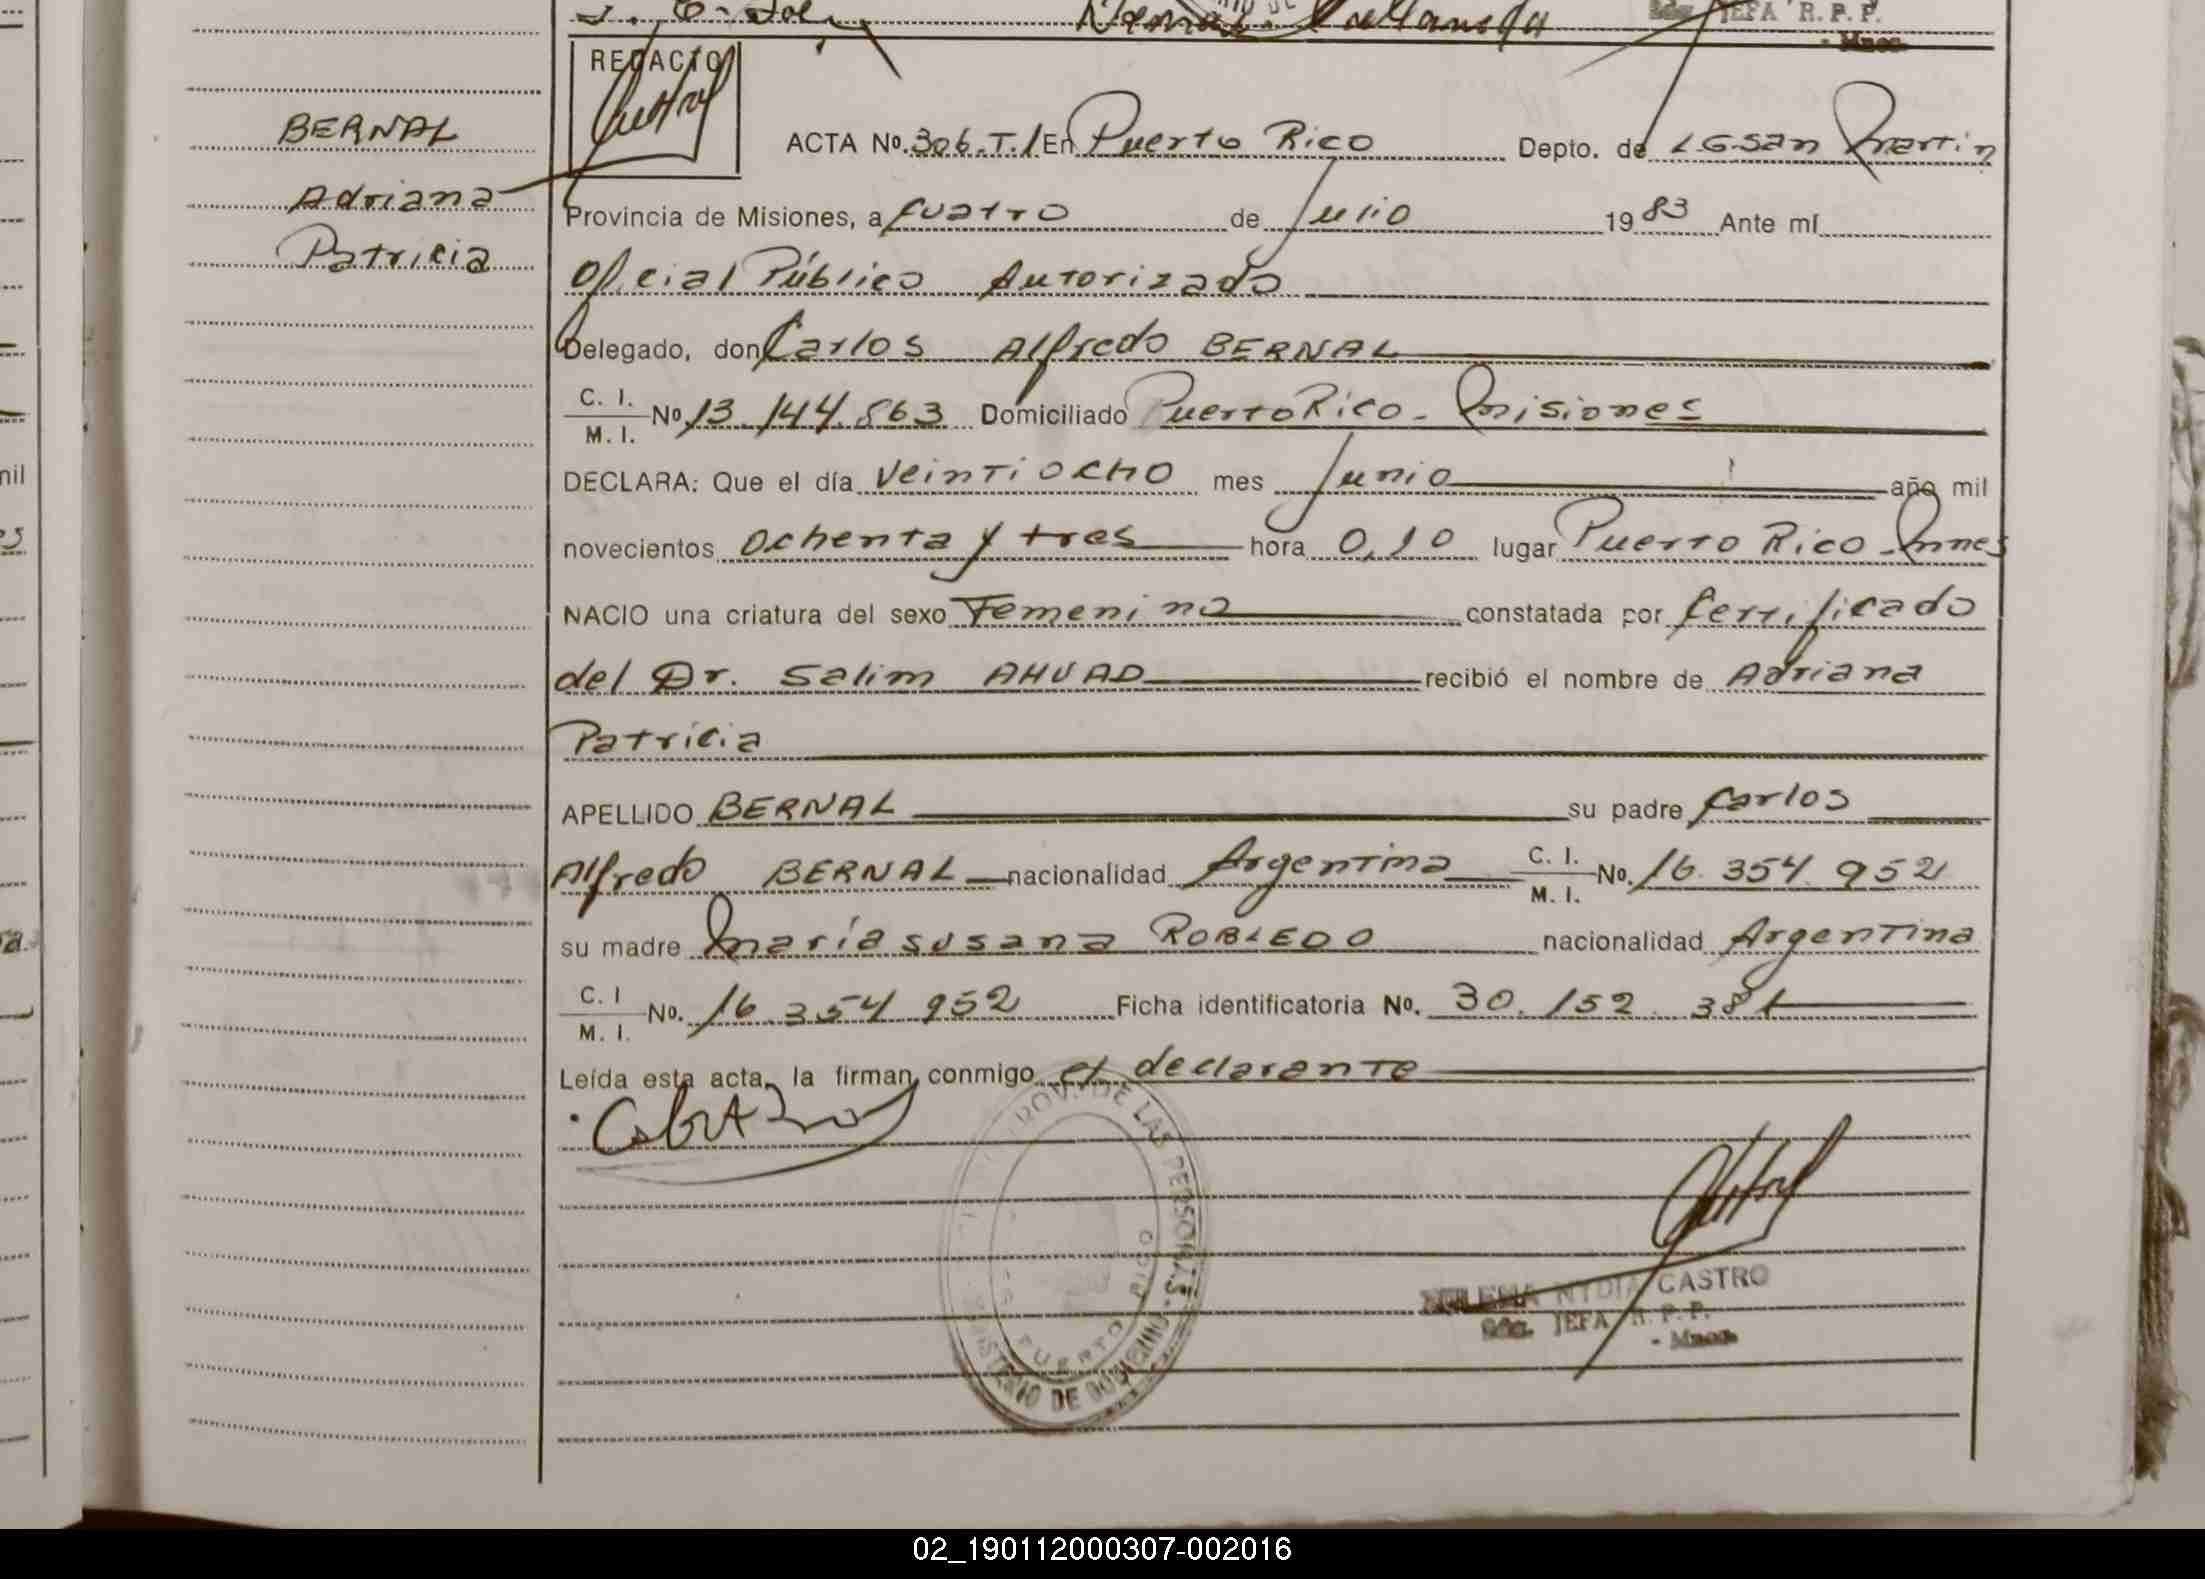 JEFA R. P. P.
- Mnes.
REDACTO
BERNAL
Adriana
Patricia
ACTA Nº. 306. T. I En Puerto Rico Depto. de L.G.San Martin
Provincia de Misiones, a cuatro de Julio 19 83 Ante mí
Oficial Público Autorizado
Delegado, don Carlos Alfredo BERNAL
C. I.
M. I. Nº 13.144.863 Domiciliado Puerto Rico - Misiones
DECLARA: Que el día veintiocho mes Junio año mil
novecientos ochenta y tres hora 0,10 lugar Puerto Rico - Mnes
NACIO una criatura del sexo Femenino constatada por Certificado
del Dr. Salim AHUAD recibió el nombre de Adriana
Patricia
APELLIDO BERNAL su padre Carlos
Alfredo BERNAL nacionalidad Argentina C. I.
M. I. No. 16.354.952
su madre María susana ROBLEDO nacionalidad Argentina
C. I
M. I. Nº. 16.354.952 Ficha identificatoria Nº. 30.152.381
Leída esta acta, la firman conmigo el declarante
PROV. DE LAS PERSONAS
PUERTO RICO
MINISTERIO DE GOBIERNO
NYDIA CASTRO
JEFA R. P. P.
- Mnes.
02_190112000307-002016